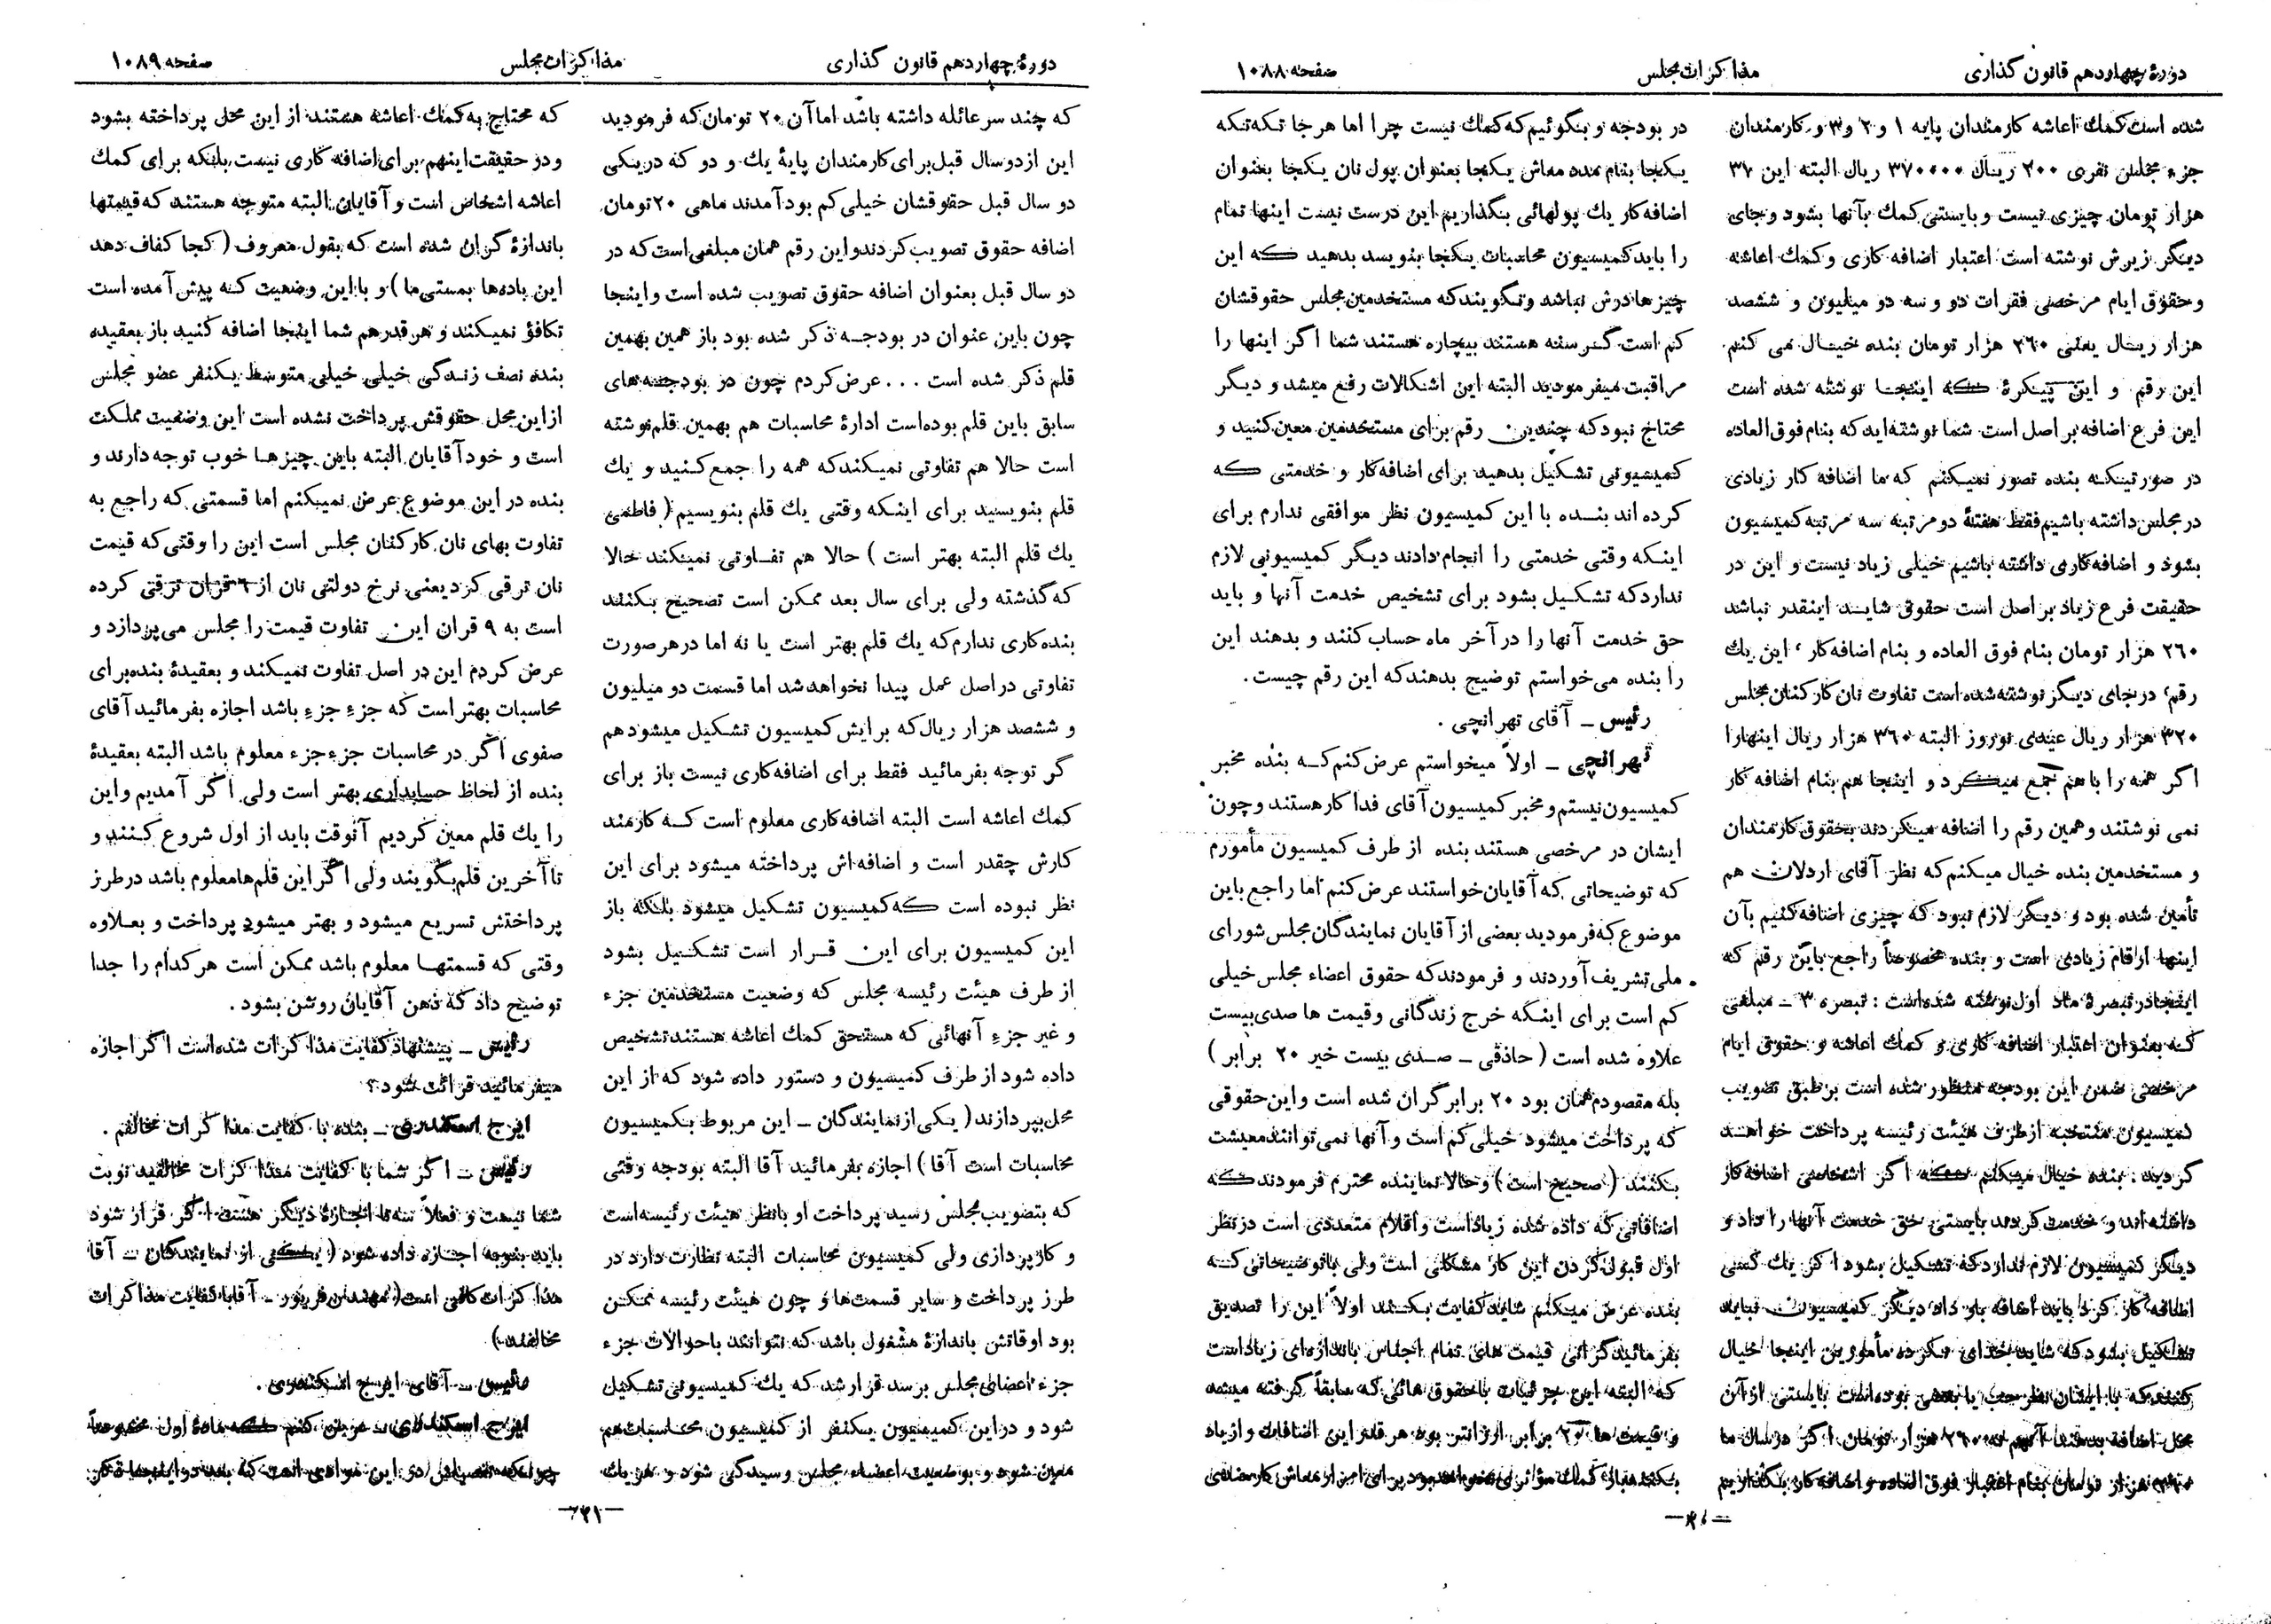 دورهٔ چهاردهم قانون گذاری
مذاکرات مجلس
صفحه ۱۰۸۸
شده است کمك اعاشه کارمندان پایه ۱ و ۲ و ۳ و کارمندان
جزء مجلس نفری ۲۰۰ ریال ۳۷۰۰۰۰ ریال البته این ۳۷
هزار تومان چیزی نیست و بایستی کمك بآنها بشود و جای
دیگر زیرش نوشته است اعتبار اضافه کاری و کمك اعاشه
و حقوق ایام مرخصی فقرات دو و سه دو میلیون و ششصد
هزار ریال یعنی ۲۶۰ هزار تومان بنده خیال می کنم
این رقم و این پیکرهٔ که اینجا نوشته شده است
این فرع اضافه بر اصل است شما نوشته‌اید که بنام فوق العاده
در صورتیکه بنده تصور نمیکنم که ما اضافه کار زیادی
در مجلس داشته باشیم فقط هفتهٔ دو مرتبه سه مرتبه کمیسیون
بشود و اضافه کاری داشته باشیم خیلی زیاد نیست و این در
حقیقت فرع زیاد بر اصل است حقوق شاید اینقدر نباشد
۲۶۰ هزار تومان بنام فوق العاده و بنام اضافه کار، این یك
رقم، در جای دیگر نوشته شده است تفاوت نان کارکنان مجلس
۳۲۰ هزار ریال عیدی نوروز البته ۳۶۰ هزار ریال اینها را
اگر همه را با هم جمع میکرد و اینجا هم بنام اضافه کار
نمی نوشتند و همین رقم را اضافه میکردند بحقوق کارمندان
و مستخدمین بنده خیال میکنم که نظر آقای اردلان هم
تأمین شده بود و دیگر لازم نبود که چیزی اضافه کنیم بآن
اینها ارقام زیادی است و بنده مخصوصاً راجع باین رقم که
اینجا در تبصرهٔ ماد اول نوشته شده است : تبصره ۳ ـ مبلغی
که بعنوان اعتبار اضافه کاری و کمك اعاشه و حقوق ایام
مرخصی ضمن این بودجه منظور شده است بر طبق تصویب
کمیسیون منتخبه از طرف هیئت رئیسه پرداخت خواهد
گردید : بنده خیال میکنم که اگر اشخاصی اضافه کار
داشته اند و خدمت کردند بایستی حق خدمت آنها را داد و
دیگر کمیسیون لازم ندارد که تشکیل بشود اگر یك کسی
اضافه کار کرد باید اضافه باو داد دیگر کمیسیون نباید
تشکیل بشود که شاید خدای نکرده مأمورین اینجا خیال
کنند که با ایشان نظر حب یا بغضی بوده است بایستی از آن
محل اضافه بدهند آنهم نه ۲۶۰ هزار تومان اگر در سال ما
۲۶۰ هزار تومان بنام اعتبار فوق العاده و اضافه کار بگذاریم
در بودجه و بگوئیم که کمك نیست چرا اما هر جا تکه تکه
یکجا بنام مدد معاش یکجا بعنوان پول نان یکجا بعنوان
اضافه کار یك پولهائی بگذاریم این درست نیست اینها تمام
را باید کمیسیون محاسبات یکجا بنویسد بدهید که این
چیزها درش نباشد و نگویند که مستخدمین مجلس حقوقشان
کم است گرسنه هستند بیچاره هستند شما اگر اینها را
مراقبت میفرمودید البته این اشکالات رفع میشد و دیگر
محتاج نبود که چندین رقم برای مستخدمین معین کنید و
کمیسیونی تشکیل بدهید برای اضافه کار و خدمتی که
کرده اند بنده با این کمیسیون نظر موافقی ندارم برای
اینکه وقتی خدمتی را انجام دادند دیگر کمیسیونی لازم
ندارد که تشکیل بشود برای تشخیص خدمت آنها و باید
حق خدمت آنها را در آخر ماه حساب کنند و بدهند این
را بنده می خواستم توضیح بدهند که این رقم چیست .
رئیس ـ آقای تهرانچی .
تهرانچی ـ اولاً میخواستم عرض کنم که بنده مخبر
کمیسیون نیستم و مخبر کمیسیون آقای فداکار هستند و چون
ایشان در مرخصی هستند بنده از طرف کمیسیون مأمورم
که توضیحاتی که آقایان خواستند عرض کنم اما راجع باین
موضوع که فرمودید بعضی از آقایان نمایندگان مجلس شورای
ملی تشریف آوردند و فرمودند که حقوق اعضاء مجلس خیلی
کم است برای اینکه خرج زندگانی و قیمت ها صدی بیست
علاوه شده است ( حاذقی ـ صدی بیست خیر ۲۰ برابر )
بله مقصودم همان بود ۲۰ برابر گران شده است و این حقوقی
که پرداخت میشود خیلی کم است و آنها نمی توانند معیشت
بکنند ( صحیح است ) و حالا نماینده محترم فرمودند که
اضافاتی که داده شده زیاد است و اقلام متعددی است در نظر
اول قبول کردن این کار مشکلی است ولی با توضیحاتی که
بنده عرض میکنم شاید کفایت بکند اولاً این را تصدیق
بفرمائید گرانی قیمت های تمام اجناس باندازه‌ای زیاد است
که البته این جزئیات با حقوق هائی که سابقاً گرفته میشد
و قیمت ها ۲۰ برابر ارزانتر بود هر قدر این اضافات و ازیاد
بکند مبلغ کمك مؤثری نخواهد بود برای امرار معاش کارمندی
دورهٔ چهاردهم قانون گذاری
مذاکرات مجلس
صفحه ۱۰۸۹
که چند سر عائله داشته باشد اما آن ۲۰ تومان که فرمودید
این از دو سال قبل برای کارمندان پایهٔ یك و دو که در یکی
دو سال قبل حقوقشان خیلی کم بود آمدند ماهی ۲۰ تومان
اضافه حقوق تصویب کردند و این رقم همان مبلغی است که در
دو سال قبل بعنوان اضافه حقوق تصویب شده است و اینجا
چون باین عنوان در بودجه ذکر شده بود باز همین بهمین
قلم ذکر شده است . . . عرض کردم چون در بودجه های
سابق باین قلم بوده است ادارهٔ محاسبات هم بهمین قلم نوشته
است حالا هم تفاوتی نمیکند که همه را جمع کنید و یك
قلم بنویسید برای اینکه وقتی یك قلم بنویسیم ( فاطمی
یك قلم البته بهتر است ) حالا هم تفاوتی نمیکند حالا
که گذشته ولی برای سال بعد ممکن است تصحیح بکنند
بنده کاری ندارم که یك قلم بهتر است یا نه اما در هر صورت
تفاوتی در اصل عمل پیدا نخواهد شد اما قسمت دو میلیون
و ششصد هزار ریال که برایش کمیسیون تشکیل میشود هم
گر توجه بفرمائید فقط برای اضافه کاری نیست باز برای
کمك اعاشه است البته اضافه کاری معلوم است که کارمند
کارش چقدر است و اضافه‌اش پرداخته میشود برای این
نظر نبوده است که کمیسیون تشکیل میشود بلکه باز
این کمیسیون برای این قرار است تشکیل بشود
از طرف هیئت رئیسه مجلس که وضعیت مستخدمین جزء
و غیر جزء آنهائی که مستحق کمك اعاشه هستند تشخیص
داده شود از طرف کمیسیون و دستور داده شود که از این
محل بپردازند ( یکی از نمایندگان ـ این مربوط بکمیسیون
محاسبات است آقا ) اجازه بفرمائید آقا البته بودجه وقتی
که بتصویب مجلس رسید پرداخت او با نظر هیئت رئیسه است
و کارپردازی ولی کمیسیون محاسبات البته نظارت دارد در
طرز پرداخت و سایر قسمت ها و چون هیئت رئیسه ممکن
بود اوقاتش باندازهٔ مشغول باشد که نتوانند باحوالات جزء
جزء اعضای مجلس برسد قرار شد که یك کمیسیونی تشکیل
شود و در این کمیسیون یکنفر از کمیسیون محاسبات هم
معین شود و بوضعیت اعضاء مجلس رسیدگی شود و هر یك
که محتاج به کمك اعاشه هستند از این محل پرداخته بشود
و در حقیقت اینهم برای اضافه کاری نیست بلکه برای کمك
اعاشه اشخاص است و آقایان البته متوجه هستند که قیمتها
باندازهٔ گران شده است که بقول معروف ( کجا کفاف دهد
این باده‌ها بمستی ما ) و با این وضعیت که پیش آمده است
تکافؤ نمیکند و هر قدر هم شما اینجا اضافه کنید باز بعقیده
بنده نصف زندگی خیلی خیلی متوسط یکنفر عضو مجلس
از این محل حقوقش پرداخت نشده است این وضعیت مملکت
است و خود آقایان البته باین چیزها خوب توجه دارند و
بنده در این موضوع عرض نمیکنم اما قسمتی که راجع به
تفاوت بهای نان کارکنان مجلس است این را وقتی که قیمت
نان ترقی کرد یعنی نرخ دولتی نان از ٦ قران ترقی کرده
است به ۹ قران این تفاوت قیمت را مجلس می پردازد و
عرض کردم این در اصل تفاوت نمیکند و بعقیدهٔ بنده برای
محاسبات بهتر است که جزء جزء باشد اجازه بفرمائید آقای
صفوی اگر در محاسبات جزء جزء معلوم باشد البته بعقیدهٔ
بنده از لحاظ حسابداری بهتر است ولی اگر آمدیم و این
را یك قلم معین کردیم آنوقت باید از اول شروع کنند و
تا آخرین قلم بگویند ولی اگر این قلم‌ها معلوم باشد در طرز
پرداختش تسریع میشود و بهتر میشود پرداخت و بعلاوه
وقتی که قسمتها معلوم باشد ممکن است هر کدام را جدا
توضیح داد که ذهن آقایان روشن بشود .
رئیس ـ پیشنهاد کفایت مذاکرات شده است اگر اجازه
میفرمائید قرائت شود؟
ایرج اسکندری ـ بنده با کفایت مذاکرات مخالفم .
رئیس ـ اگر شما با کفایت مذاکرات مخالفید نوبت
شما نیست و فعلاً سه تا اجازهٔ دیگر هست اگر قرار شود
باید بنوبه اجازه داده شود ( یکی از نمایندگان ـ آقا
مذاکرات کافی است ( مهندس فریور ـ آقا با کفایت مذاکرات
مخالفند )
رئیس ـ آقای ایرج اسکندری .
ایرج اسکندری ـ عرض کنم که مادهٔ اول مخصوصاً
این موادی است که بعد در اینجا ذکر